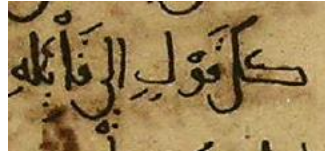 كل قول الى قائله